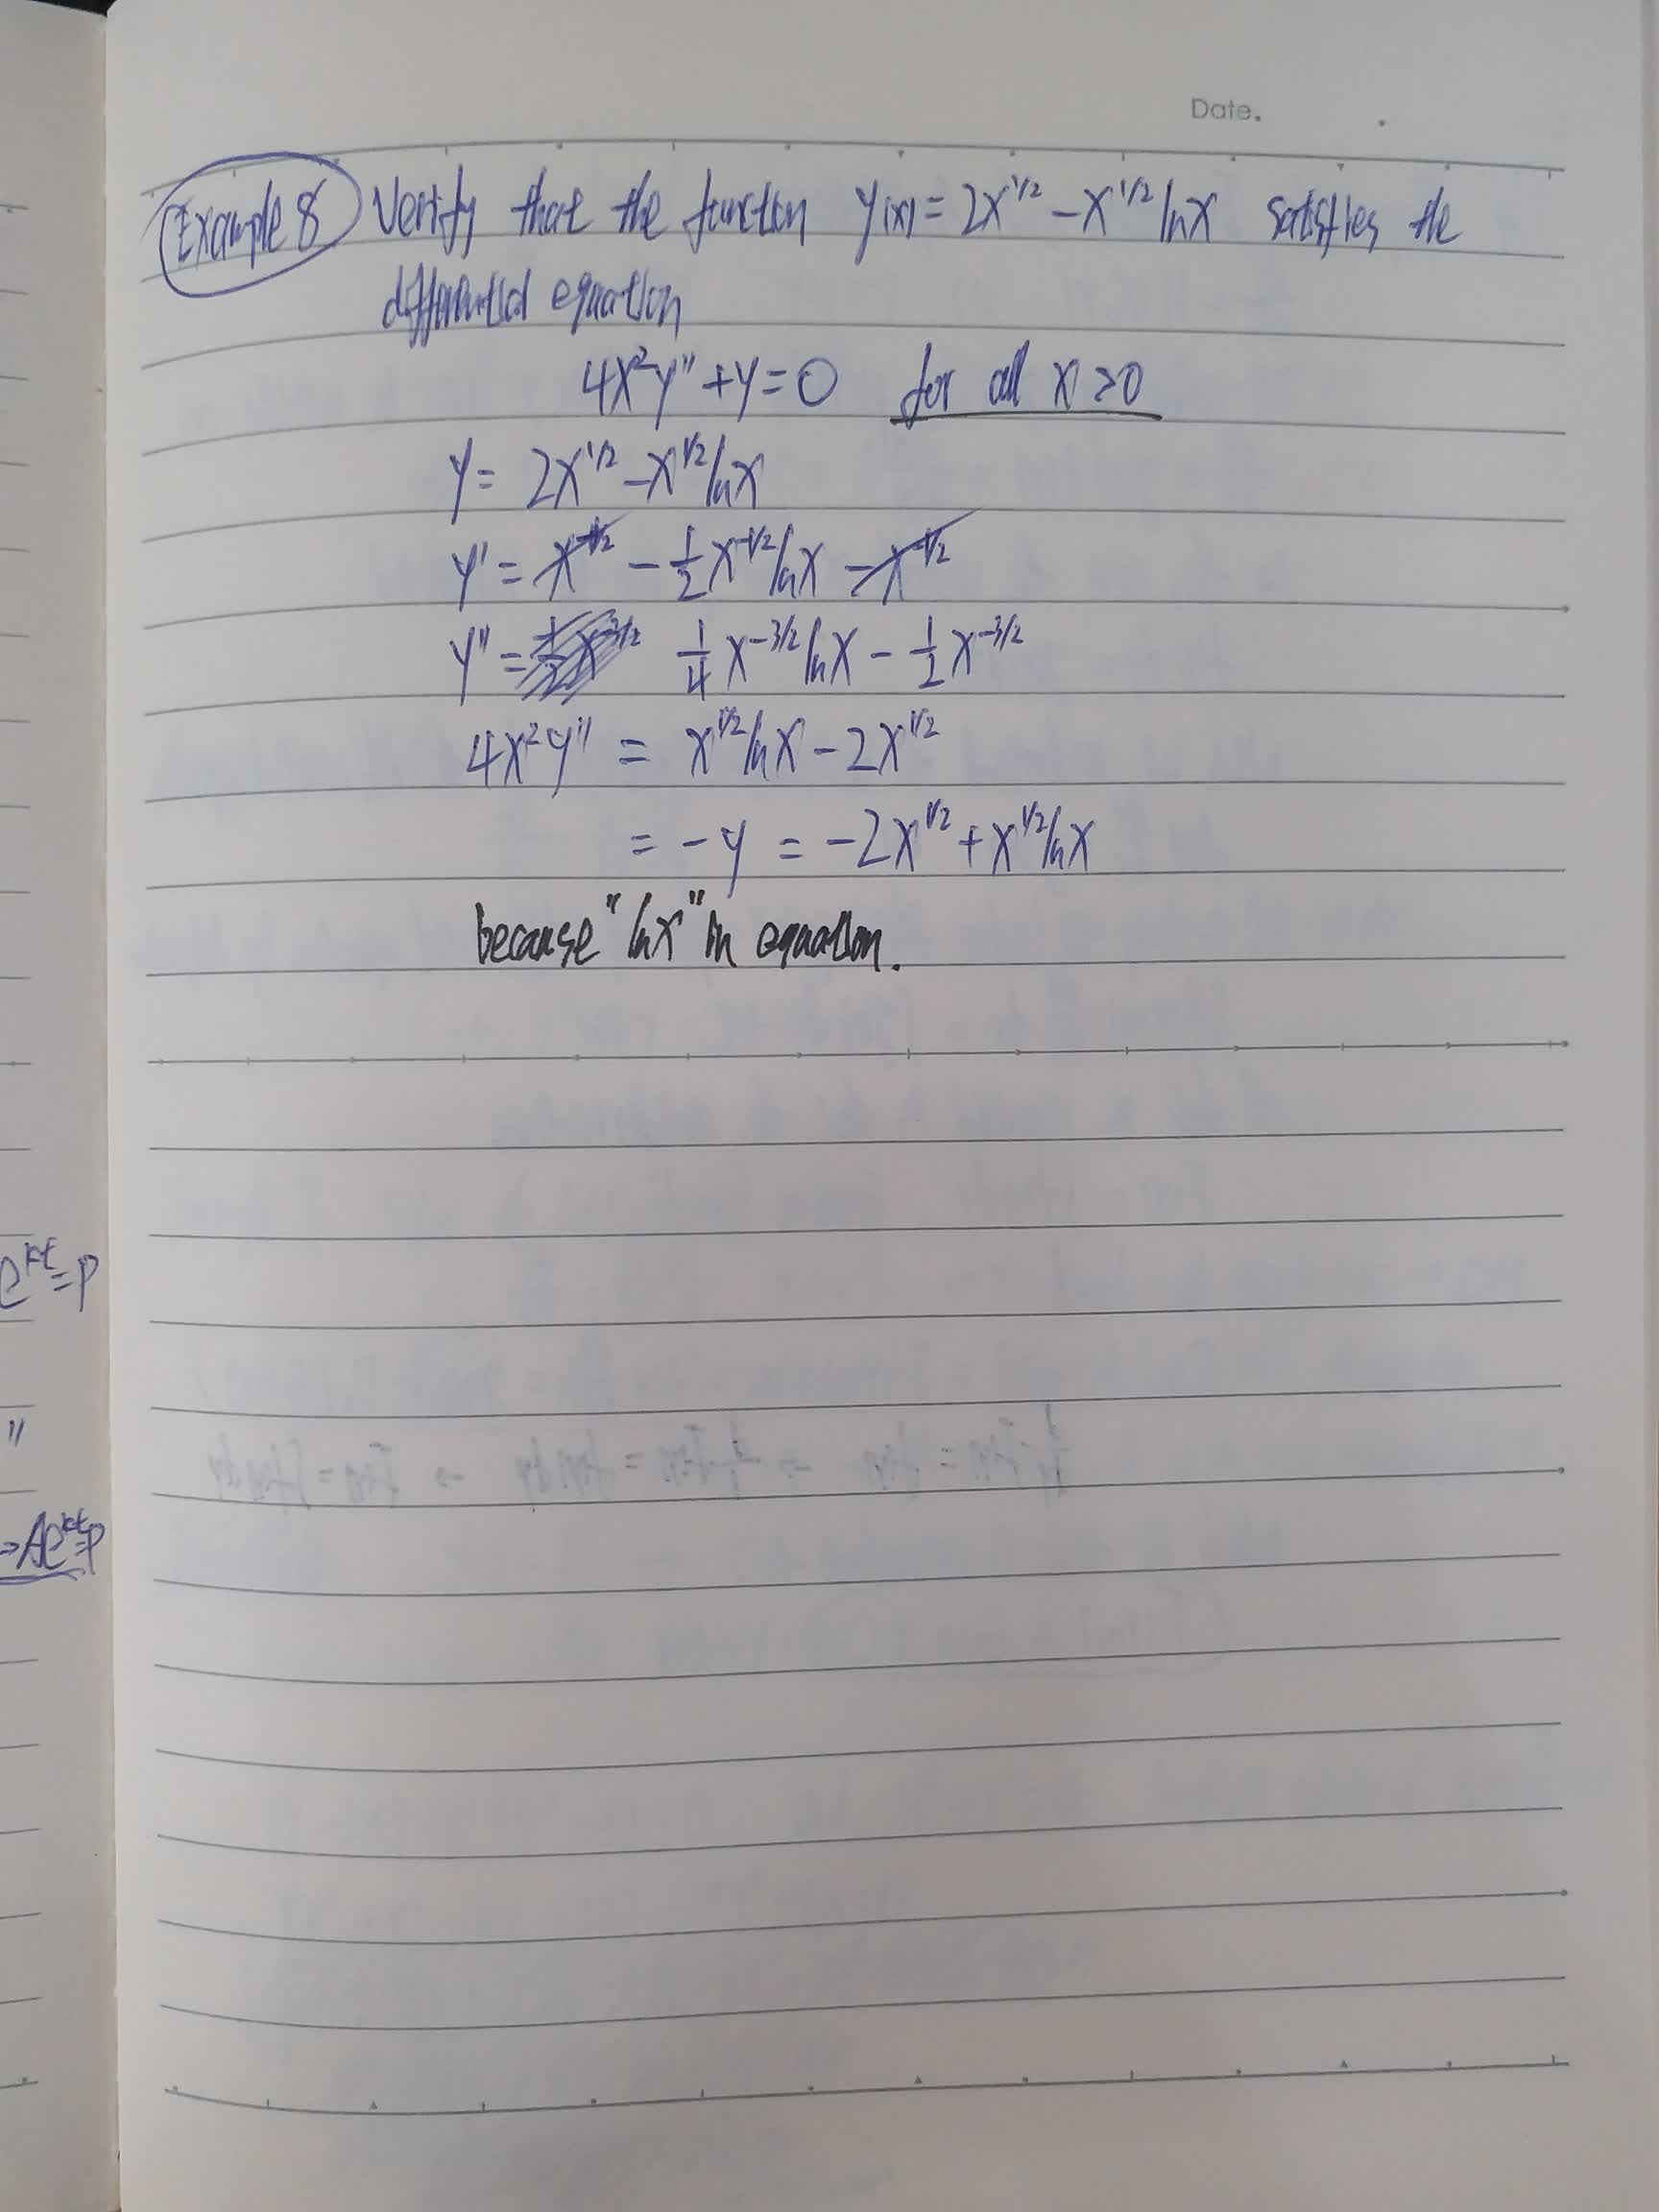 Date.
Example 8 Verify that the function y(x) = 2x^1/2 - x^1/2 lnx satisfies the
differential equation
4x²y'' + y = 0 for all x > 0
y = 2x^1/2 - x^1/2 lnx
y' = x^-1/2 - 1/2 x^-1/2 lnx - x^-1/2
y'' = 1/4 x^-3/2 lnx - 1/2 x^-3/2
4x²y'' = x^1/2 lnx - 2x^1/2
= -y = -2x^1/2 + x^1/2 lnx
because "lnx" in equation.
e^kt = P
"
⇒ Ae^kt = P